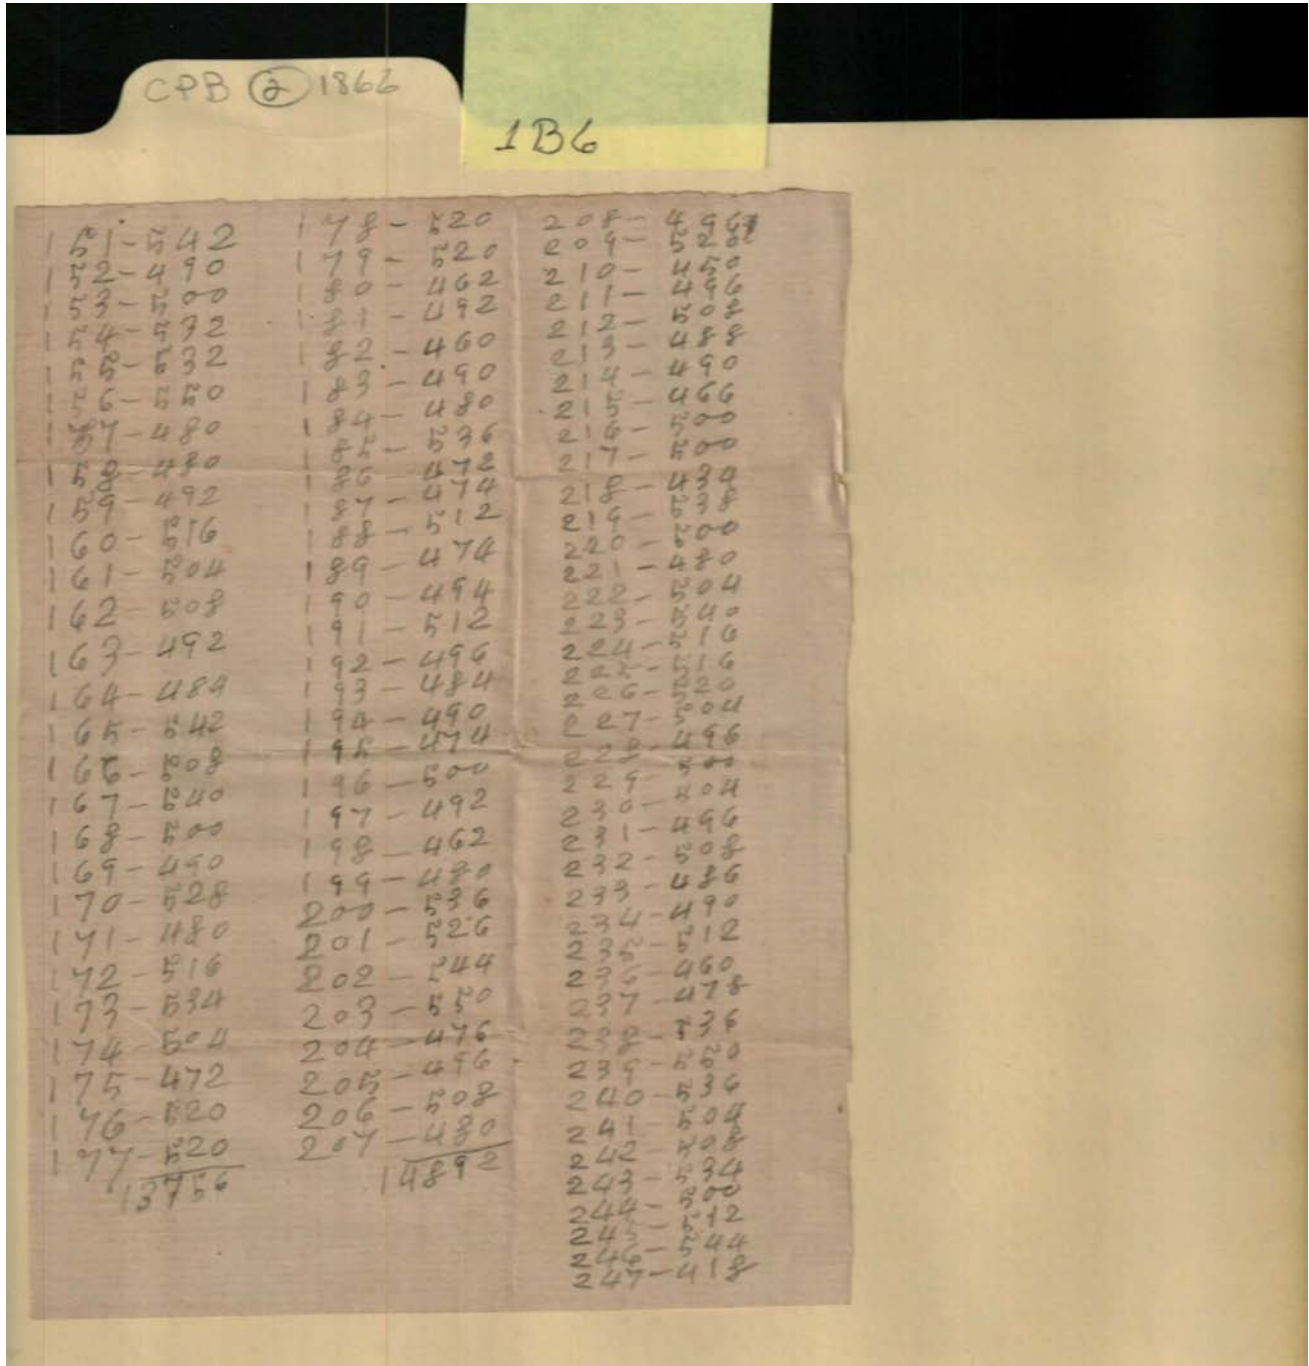 CPB ② 1862
1B6
151-542
152-490
153-500
154-532
155-532
156-550
157-480
158-480
159-492
160-516
161-504
162-508
163-492
164-484
165-542
166-508
167-540
168-500
169-490
170-528
171-480
172-516
173-534
174-504
175-472
176-520
177-520
13756
178-520
179-520
180-462
181-492
182-460
183-490
184-480
185-536
186-472
187-474
188-512
189-474
190-494
191-512
192-496
193-484
194-490
195-474
196-500
197-492
198-462
199-480
200-536
201-526
202-544
203-550
204-476
205-496
206-508
207-480
14892
208-496
209-520
210-450
211-496
212-508
213-488
214-490
215-466
216-500
217-500
218-434
219-538
220-500
221-480
222-504
223-540
224-516
225-516
226-520
227-504
228-496
229-500
230-504
231-496
232-508
233-486
234-490
235-512
236-460
237-478
238-536
239-550
240-536
241-504
242-508
243-534
244-500
245-512
246-544
247-418